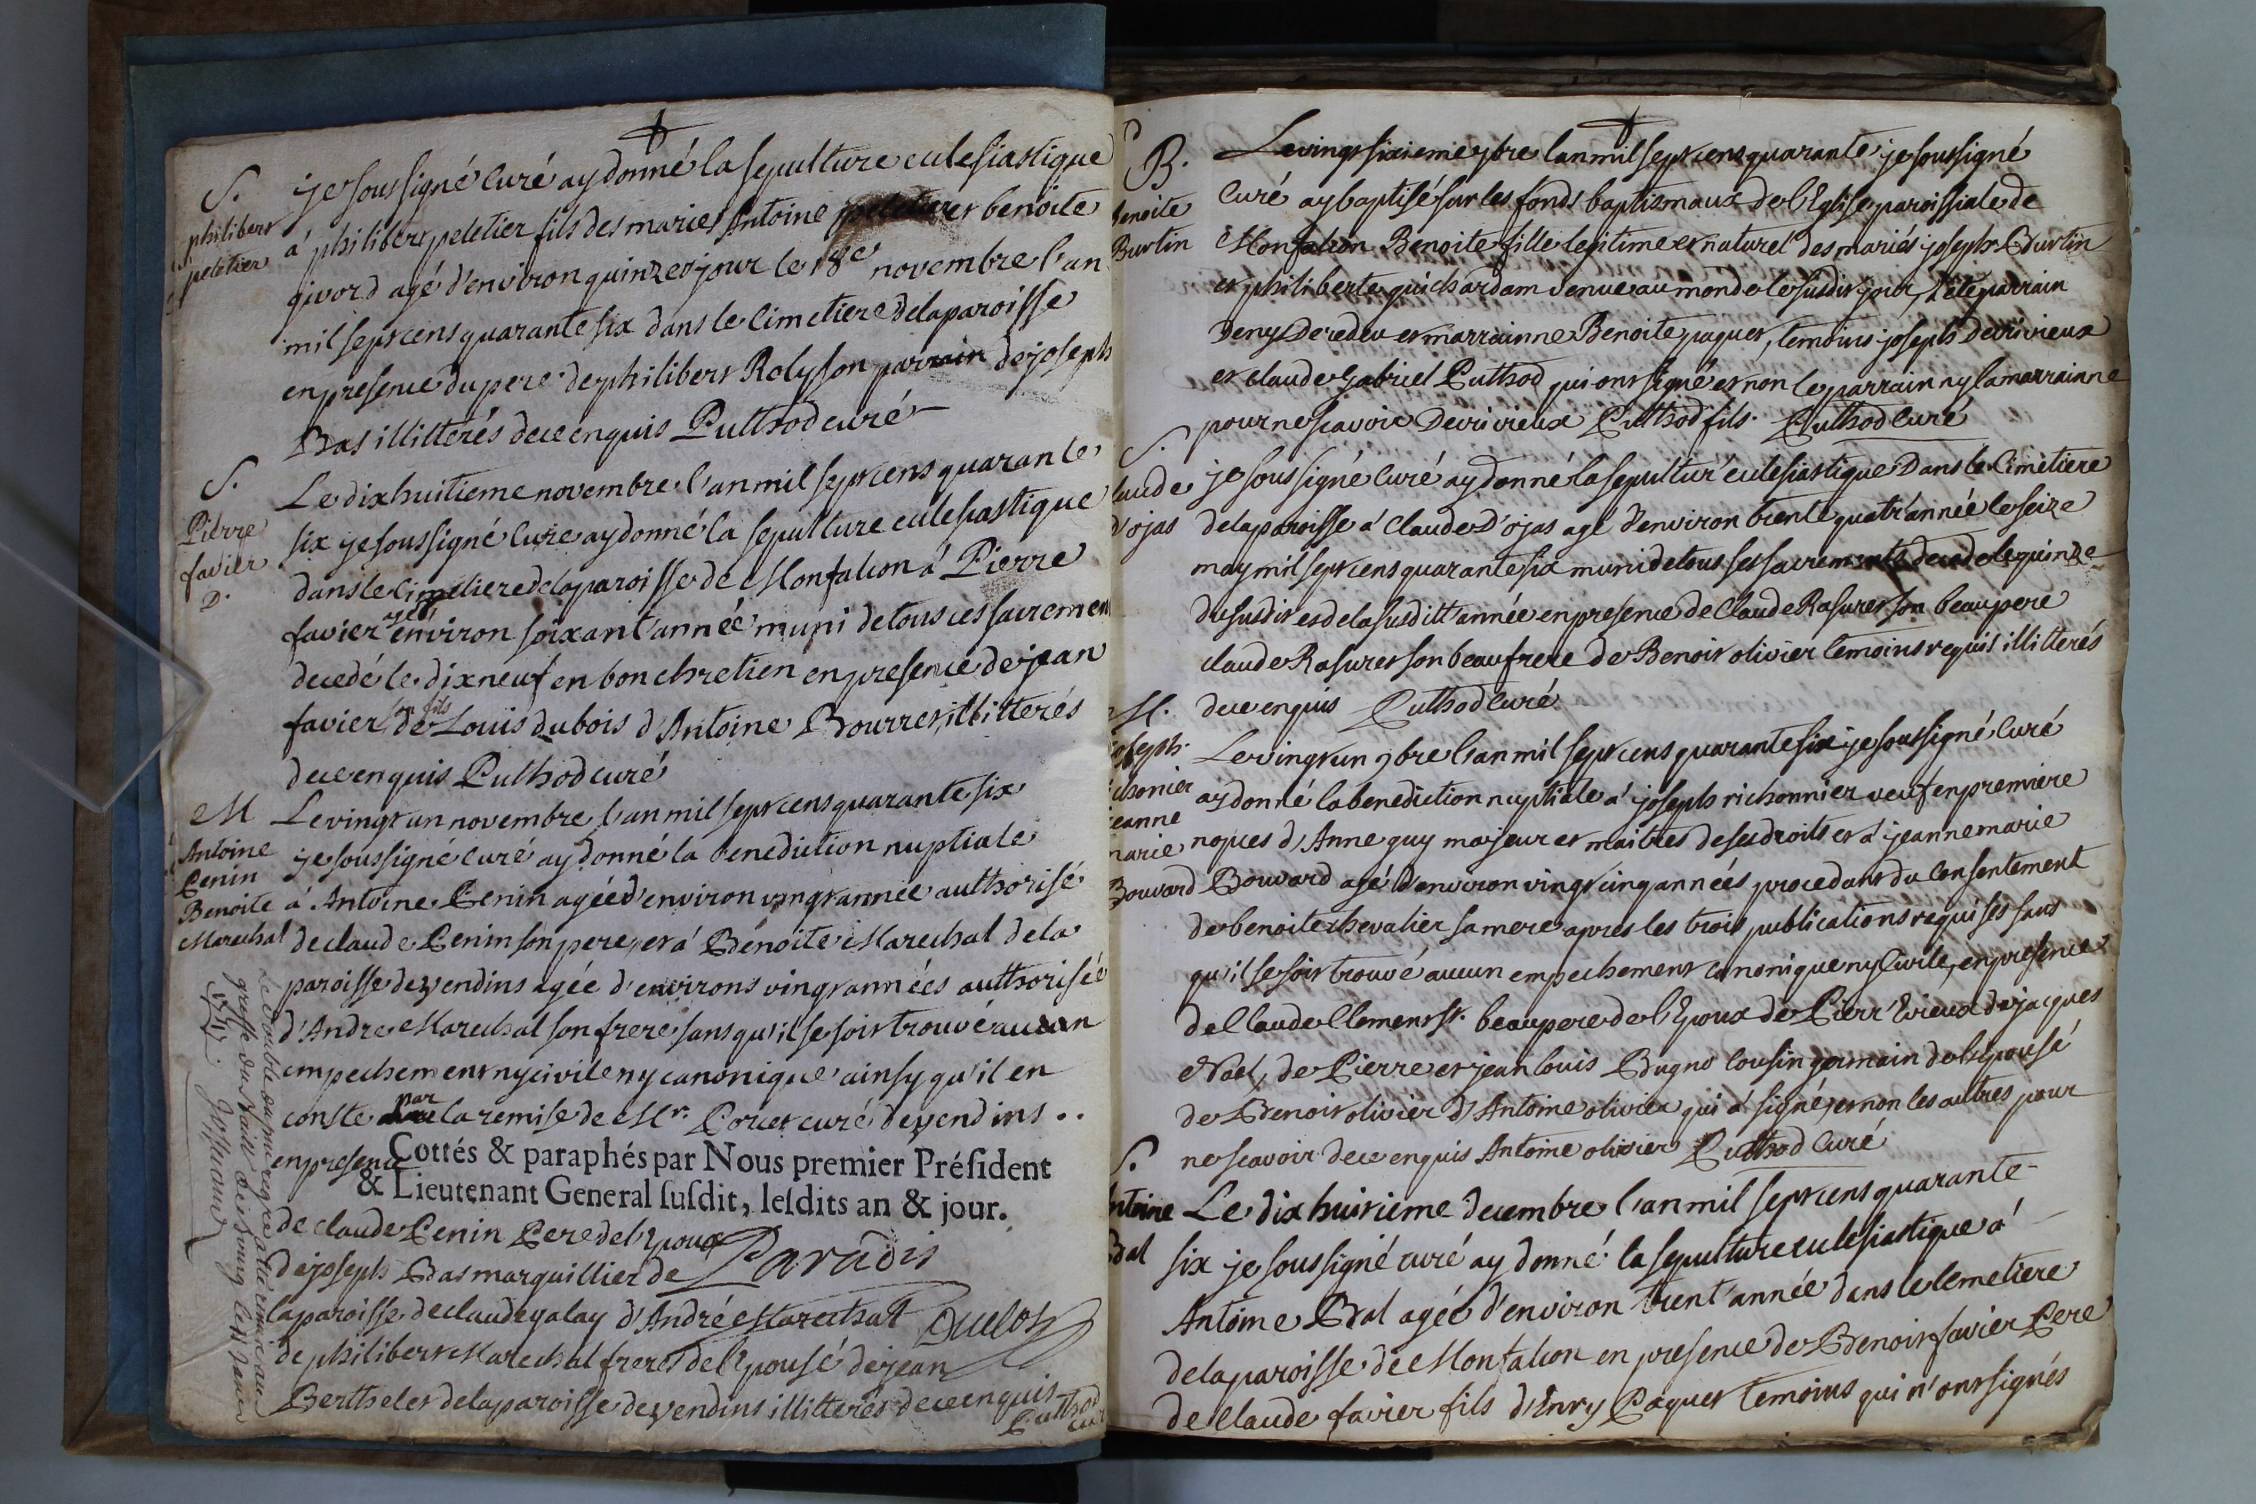 S.
philibert
peletier
je soussigné curé ay donné la sepulture eclesiastique
a' philibert peletier fils des maries Antoine peletier et benoite
givord agé d'environ quinze jour le 18e novembre l'an
mil sept cens quarante six dans le Cimetiere de la paroisse
en presence du pere de philibert Roly son parrain de joseph
Bas illitterés de ce enquis Puthod curé
S.
Pierre
favier
D.
Le dix huitieme novembre l'an mil sept cens quarante
six je soussigné Curé ay donné la sepulture eclesiastique
dans le Cimetiere de la paroisse de Monfalcon a' Pierre
favier agé environ soixant'année muni de tous ces sacremen
decedé le dix neuf en bon chretien en presence de jean
favier son fils de Louis dubois d'Antoine Bourret illitterés
de ce enquis Puthod curé
M
Antoine
Penin
Benoite
Marechal
Le vingt un novembre l'an mil sept cens quarante six
je soussigné curé ay donné la benediction nuptiale
à Antoine Penin agée d'environ vingt année authorisé
de claude Penin son pere, et a' Benoite Marechal de la
paroisse de vendins agée d'environs vingt années authorisée
d'Andre Marechal son frere sans qu'il se soit trouvé aucun
empechement ny civile ny canonique ainsy qu'il en
conste par la remise de Mr. Poncet curé de vendins ..
en presence
Cottés & paraphés par Nous premier Président
& Lieutenant General susdit, lesdits an & jour.
de claude Penin Pere de l'Epoux
de joseph Bas marquillier de
Paradis
la paroisse de claude galay d'André Marechal
Duclos
de philibert Marechal freres de l'Epousé de jean
Berthelet de la paroisse de vendins illitterés de ce enquis
Puthod
curé
Le double du
greffe du
B.
Benoite
Burtin
Le vingt sixieme 9bre l'an mil sept cens quarante je soussigné
Curé ay baptisé sur les fonds baptismaux de l'Eglise paroissiale de
Monfalcon Benoite fille legitime et naturel des mariés joseph Burtin
et philiberte guichardam venue au monde le susdit jour, a été parrain
Deny Deredeu et marrainne Benoite paquet, temoins joseph Devivieux
et claude gabriel Puthod qui ont signé et non le parrain ny la marrainne
pour ne scavoir Devivieux Puthod fils. Puthod Curé
S.
laude
D'ojas
je soussigné Curé ay donné la sepultur'eclesiastique Dans le Cimetiere
de la paroisse a' Claude D'ojas agé d'environ trente quatr'année le seize
may mil sept cens quarante six muni de tous ses sacrements decedé le quinze
du susdit et de la susditt'année en presence de Claude Rasurer son beaupere
claude Rasurer son beaufrere de Benoit olivier temoins requis illitterés
de ce enquis Puthod Curé
M.
joseph
ichonier
jeanne
marie
Bouvard
Le vingt un 9bre l'an mil sept cens quarante six je soussigné Curé
ay donné la benediction nuptiale a' joseph richonnier veuf en premiere
nopces d'Anne guy majeur et maitres de ses droits et a' jeanne marie
Bouvard agé d'environ vingt cinq années procedant du Consentement
de benoite chevalier sa mere apres les trois publications requises sans
qu'il se soit trouvé aucun empechement canonique ny Civile, en presence
de Claude Clement beaupere de l'Epoux de Pierr'Evieux de jacques
Noel, de Pierre et jean louis Bugno cousin germain de l'Epousé
de Benoit olivier d'Antoine olivier qui a' signé, et non les autres pour
ne scavoir de ce enquis Antoine olivier Puthod Curé
S.
ntoine
Bal
Le dix huitieme decembre l'an mil sept cens quarante
six je soussigné curé ay donné la sepulture eclesiastique a'
Antoine Bal agée d'environ trent'année dans le Cemetiere
de la paroisse de Monfalcon en presence de Benoit favier Pere
de Claude favier fils d'Enry Paquet temoins qui n'ont signés